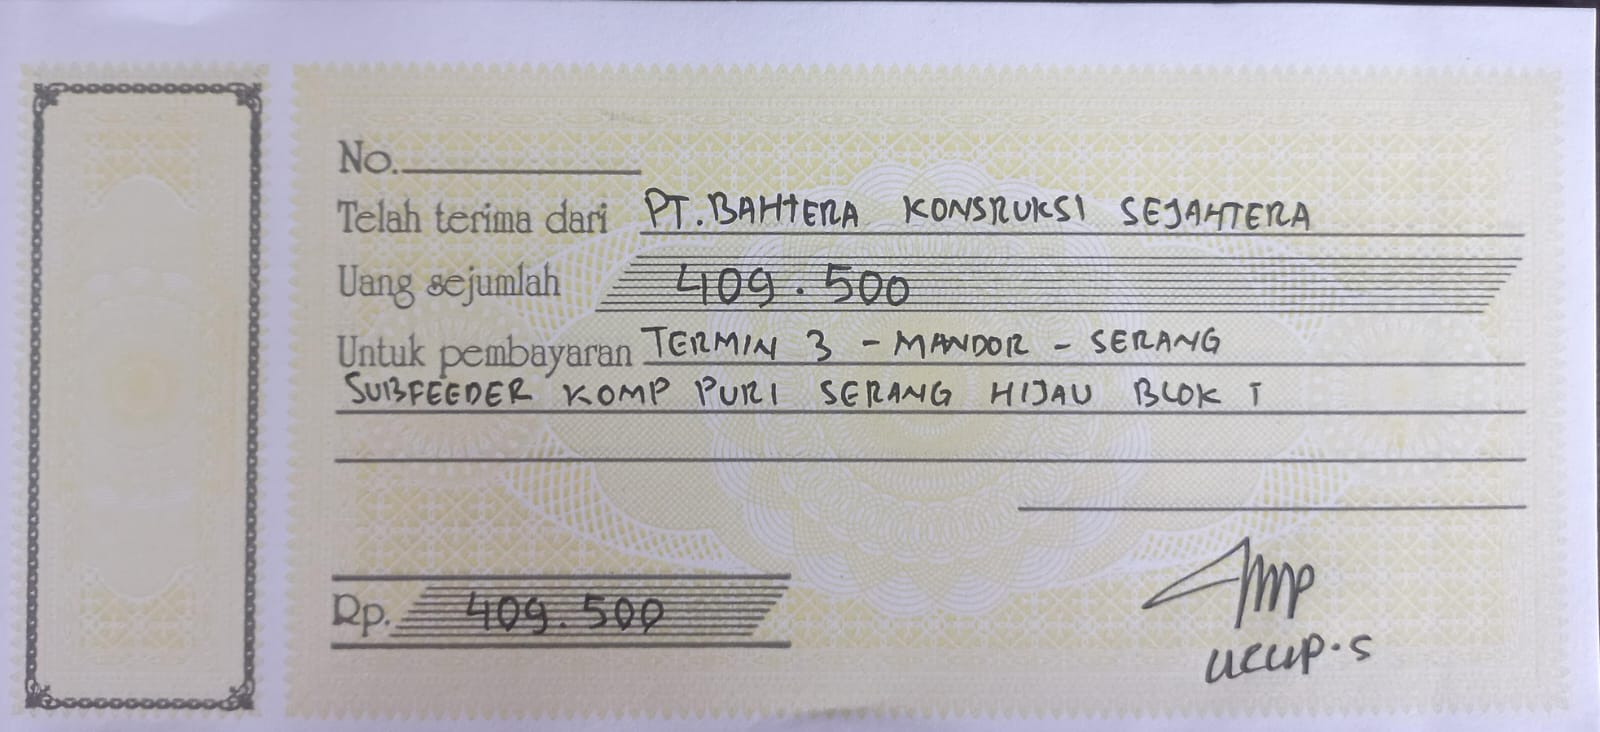 No.
Telah terima dari PT. BAHTERA KONSRUKSI SEJAHTERA
Uang sejumlah 409.500
Untuk pembayaran TERMIN 3 - MANDOR - SERANG
SUBFEEDER KOMP PURI SERANG HIJAU BLOK T
Rp. 409.500
UCUP.S